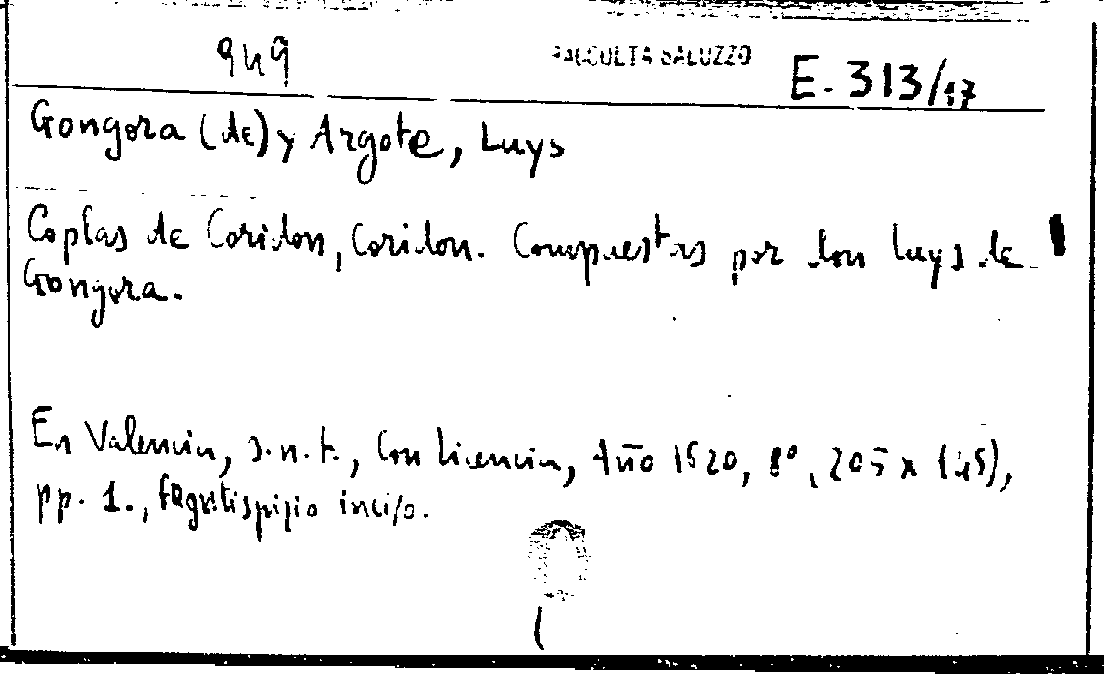 949 RACCOLTA SALUZZO E. 313/17
Gongora (de) y Argote, Luys
Coplas de Coridon, Coridon. Compuestas por don Luys de
Gongora.
En Valencia, s.n.t., Con licencia, Año 1620, 8°, 205 x 145),
pp. 1., inciso.